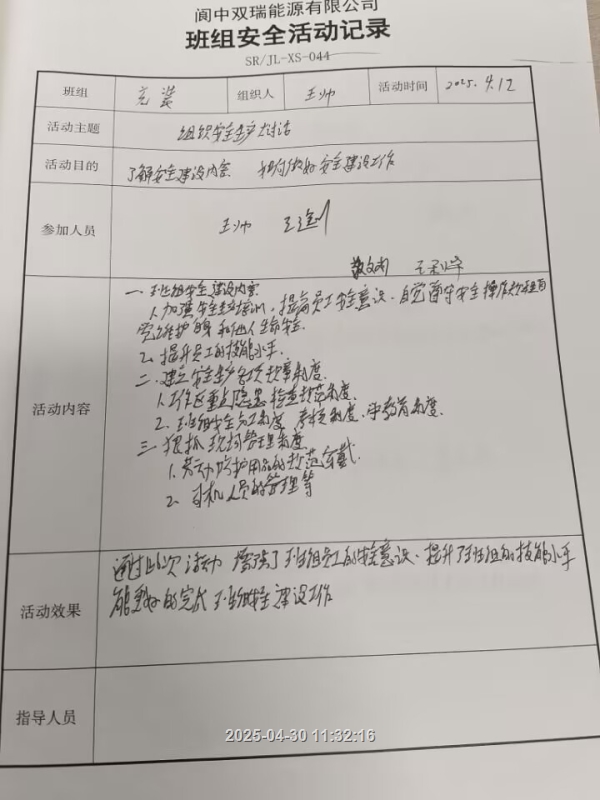 阆中双瑞能源有限公司
班组安全活动记录
SR/JL-XS-044
班组 充装 组织人 王帅 活动时间 2025.4.12
活动主题 组织安全生产大讨论
活动目的 了解安全建设内容 如何做好安全建设工作
参加人员 王帅
活动内容
一、班组安全建设内容
1.加强安全生产培训、提高员工安全意识、自觉遵守安全操作规程自
觉维护自身和他人生命安全
2、提升员工的技能水平.
二、建立安全生产各项规章制度.
1.工作区重点隐患检查规范制度.
2、班组安全员工制度、考核制度、
三、狠抓现场管理制度
1.劳动防护用品的规范穿戴.
2、司机人员的管理等
活动效果
通过此次活动 增强了班组员工的安全意识、提升了班组的技能水平
能更好的完成班组安全建设工作
指导人员
2025-04-30 11:32:16